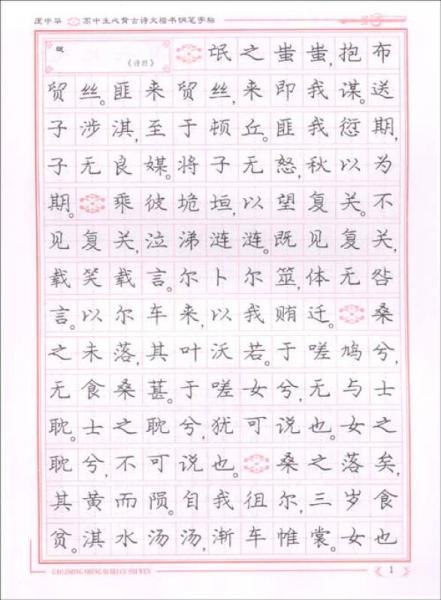 庞中华 高中生必背古诗文楷书钢笔字帖
氓
《诗经》
氓之蚩蚩,抱布
贸丝。匪来贸丝,来即我谋。送
子涉淇,至于顿丘。匪我愆期,
子无良媒。将子无怒,秋以为
期。乘彼垝垣,以望复关。不
见复关,泣涕涟涟。既见复关,
载笑载言。尔卜尔筮,体无咎
言。以尔车来,以我贿迁。桑
之未落,其叶沃若。于嗟鸠兮,
无食桑葚。于嗟女兮,无与士
耽。士之耽兮,犹可说也。女之
耽兮,不可说也。桑之落矣,
其黄而陨。自我徂尔,三岁食
贫。淇水汤汤,渐车帷裳。女也
1